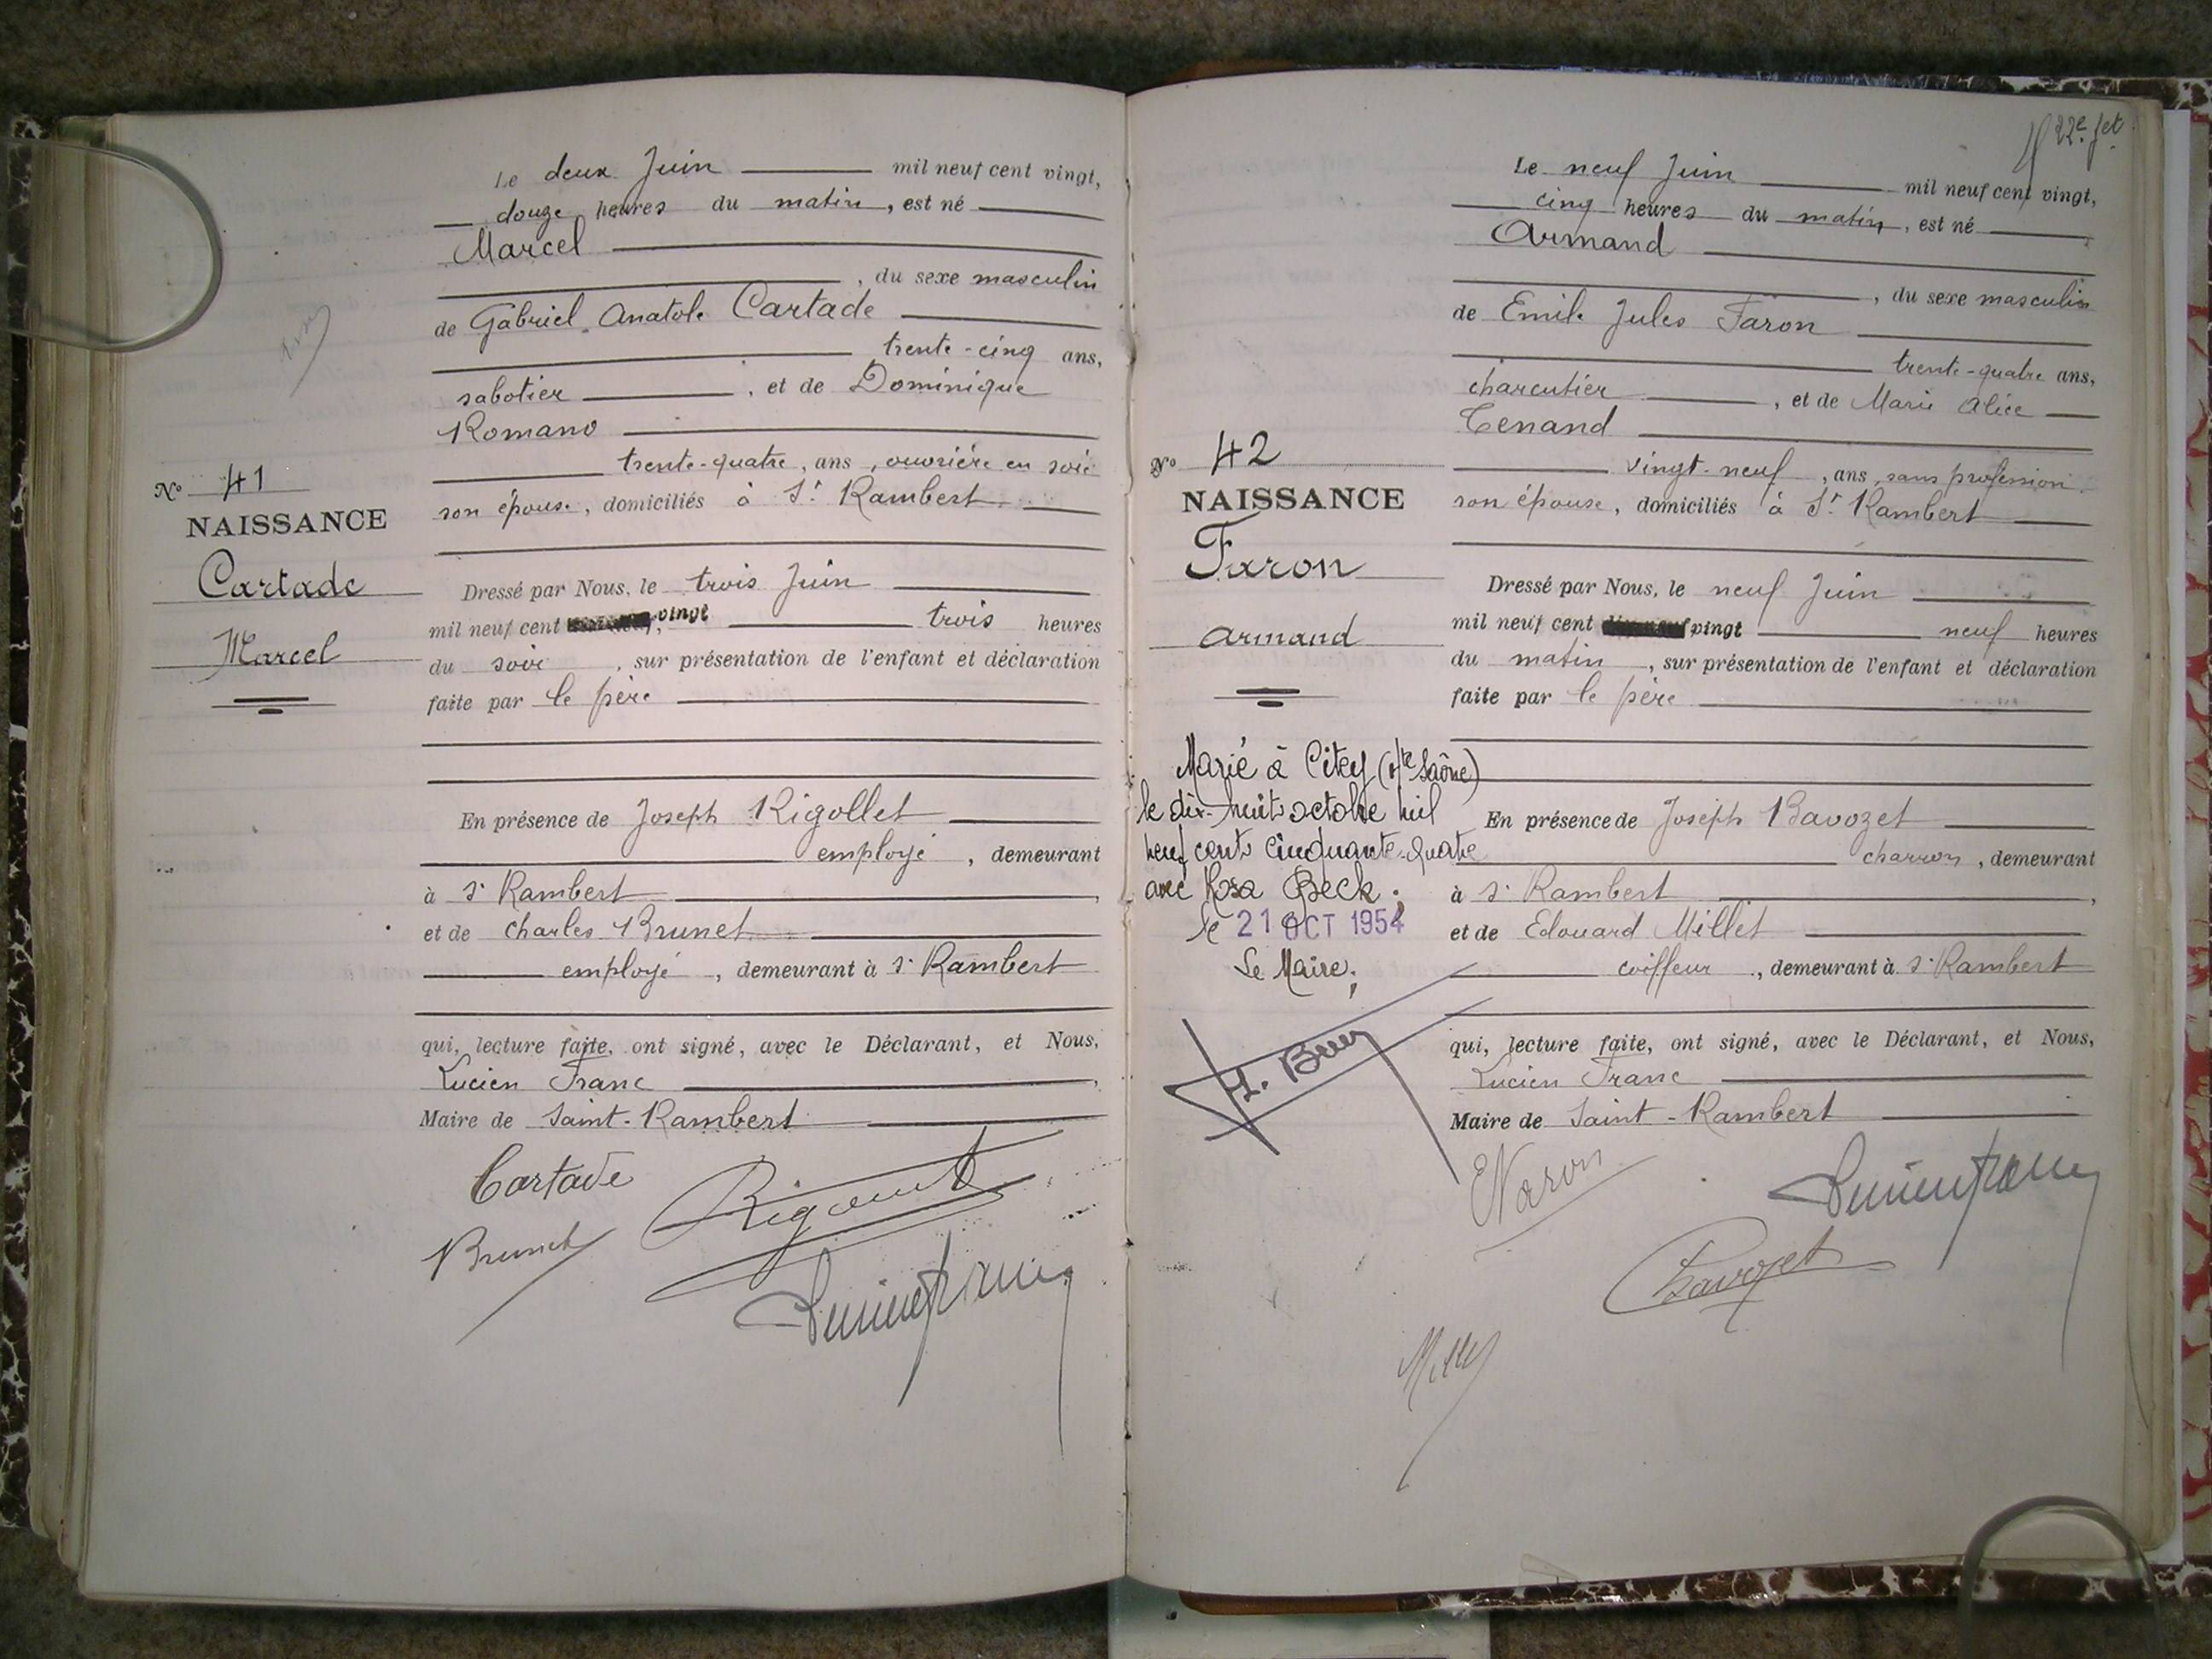 Le deux Juin mil neuf cent vingt,
douze heures du matin, est né
Marcel
, du sexe masculin
de Gabriel Anatole Cartade
trente-cinq ans,
sabotier, et de Dominique
Romano
trente-quatre, ans, ouvrière en soie
son épouse, domiciliés à St Rambert
No 41
NAISSANCE
Cartade
Marcel
Dressé par Nous, le trois Juin
mil neuf cent vingt trois heures
du soir, sur présentation de l'enfant et déclaration
faite par le père
En présence de Joseph Rigollet
employé, demeurant
à St Rambert,
et de Charles Brunet
employé, demeurant à St Rambert
qui, lecture faite, ont signé, avec le Déclarant, et Nous,
Lucien Franc,
Maire de Saint-Rambert
Cartade
Brunet
22e fet
Le neuf Juin mil neuf cent vingt,
cinq heures du matin, est né
Armand
, du sexe masculin
de Emile Jules Faron
trente-quatre ans,
charcutier, et de Marie Alice
Tenand
vingt-neuf, ans, sans profession
son épouse, domiciliés à St Rambert
No 42
NAISSANCE
Faron
Armand
Dressé par Nous, le neuf Juin
mil neuf cent vingt neuf heures
du matin, sur présentation de l'enfant et déclaration
faite par le père
Marié à Citey (Hte Saône)
le dix-huit octobre mil
neuf cent cinquante-quatre
avec Rosa Beck.
le 21 OCT 1954
Le Maire,
En présence de Joseph Bavozet
charron, demeurant
à St Rambert,
et de Edouard Millet
coiffeur, demeurant à St Rambert
qui, lecture faite, ont signé, avec le Déclarant, et Nous,
Lucien Franc
Maire de Saint-Rambert
Faron
Lucien Franc
Bavozet